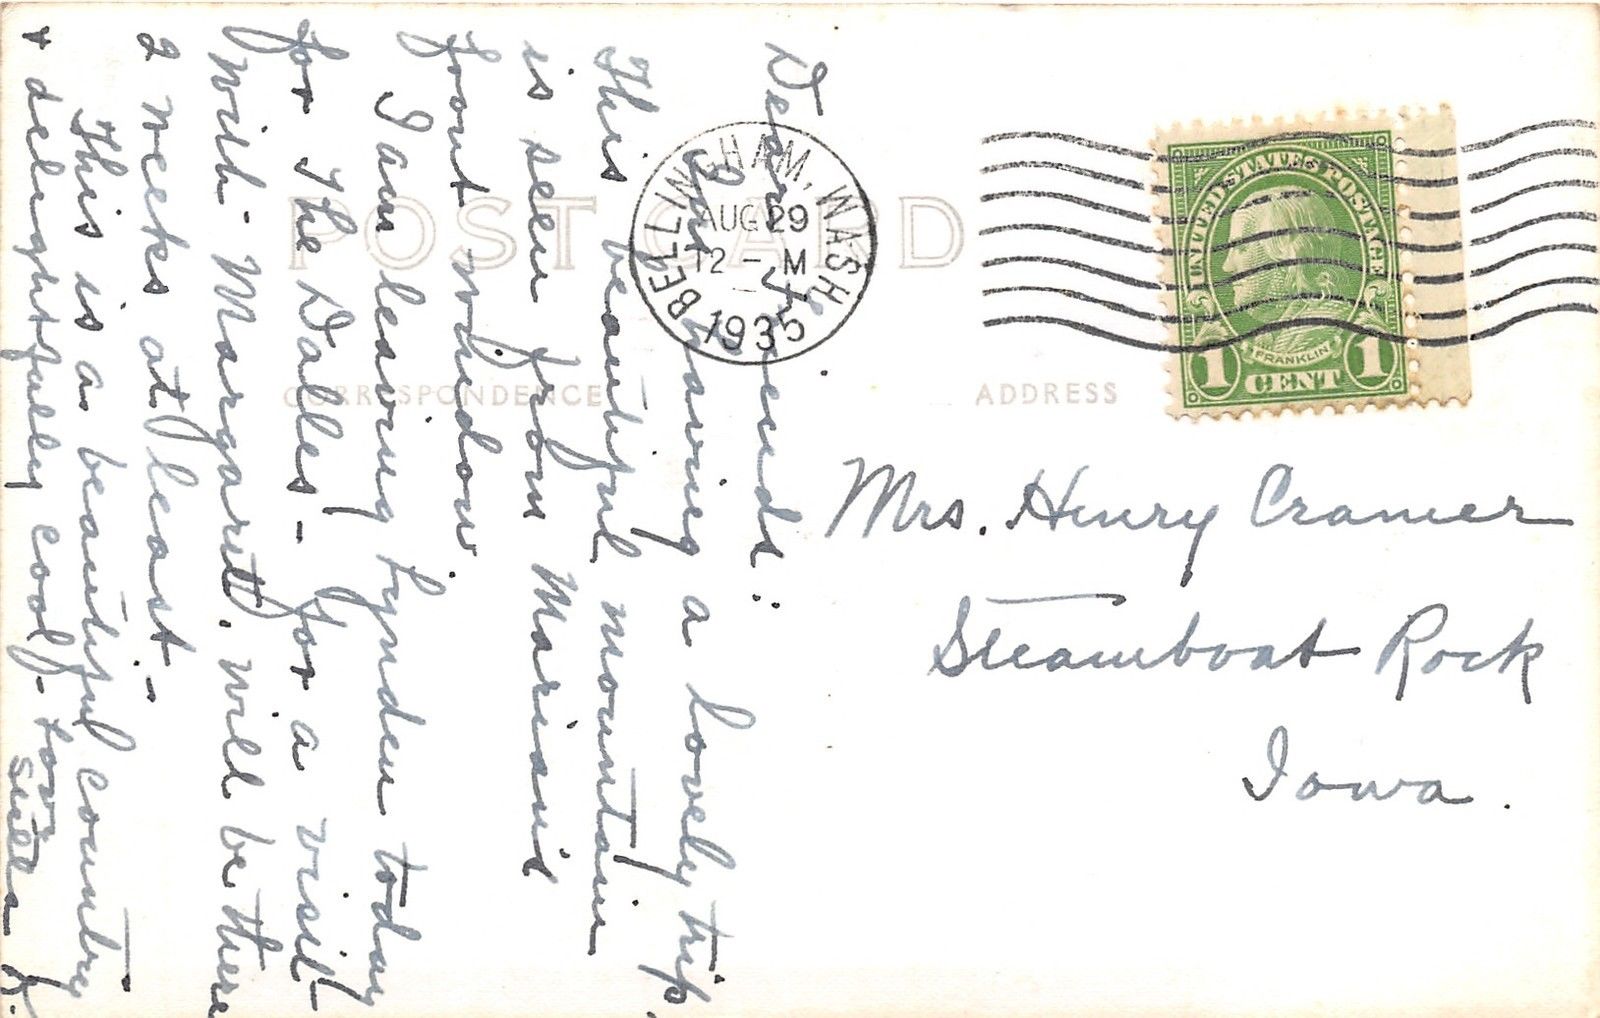 POST CARD
CORRESPONDENCE
ADDRESS
BELLINGHAM, WASH.
AUG 29
12 - M
1935
UNITED STATES POSTAGE
FRANKLIN
1 CENT 1
Dear Friends:
Am having a lovely trip.
This beautiful mountain
is seen from Marians
front window.
I am leaving Lynden today
for The Dalles - for a visit
with Margaret. Will be there
2 weeks at least -
This is a beautiful country
+ delightfully cool. Love
K.
Mrs. Henry Cramer
Steamboat Rock
Iowa.